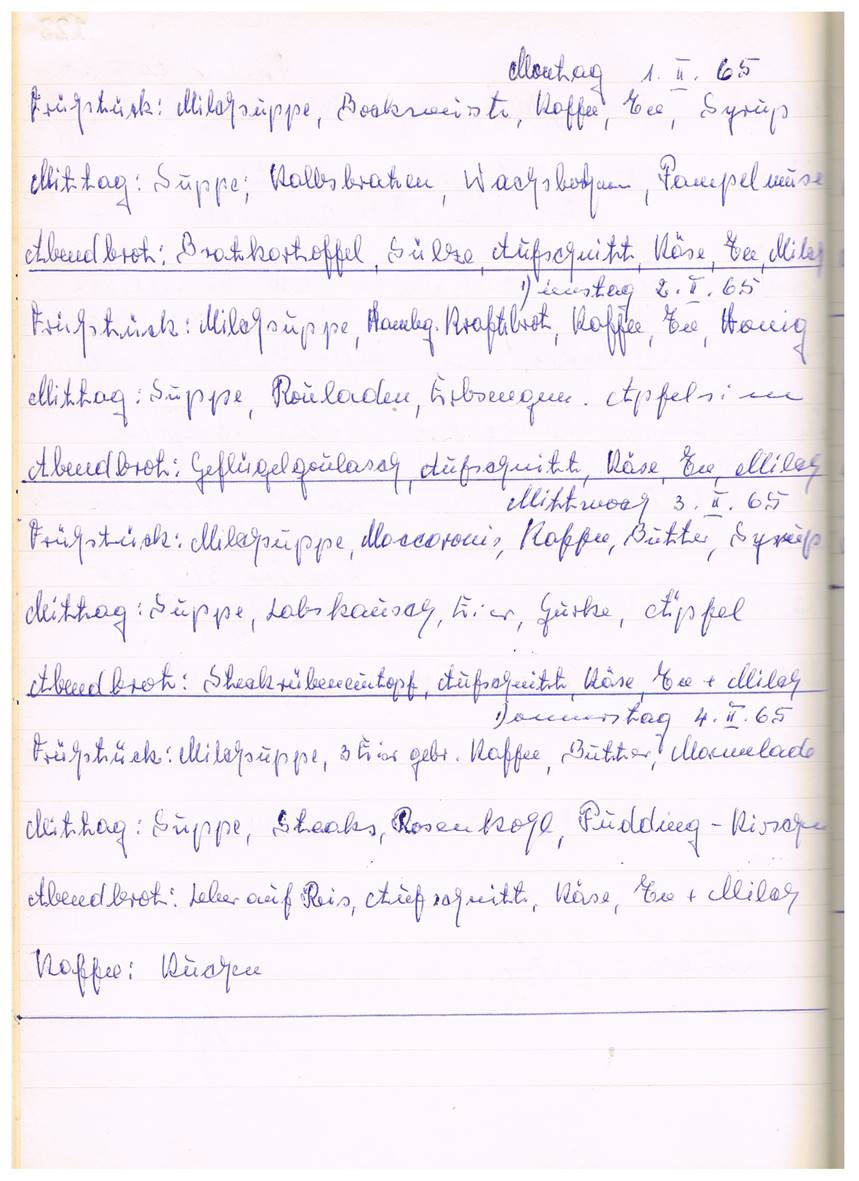 Montag 1. II. 65
Frühstück: Milchsuppe, Bockwurst, Kaffee, Tee, Syrup
Mittag: Suppe; Kalbsbraten, Wachsbohnen, Pampelmuse
Abendbrot: Bratkartoffel, Sülze, Aufschnitt, Käse, Tee, Milch
Dienstag 2. II. 65
Frühstück: Milchsuppe, Hambg. Kraftbrot, Kaffee, Tee, Honig
Mittag: Suppe, Rouladen, Erbsengem. Apfelsinen
Abendbrot: Geflügelgoulasch, Aufschnitt, Käse, Tee, Milch
Mittwoch 3. II. 65
Frühstück: Milchsuppe, Maccaronis, Kaffee, Butter, Syrup
Mittag: Suppe, Labskausch, Eier, Gurke, Äpfel
Abendbrot: Steckrübeneintopf, Aufschnitt, Käse, Tee + Milch
Donnerstag 4. II. 65
Frühstück: Milchsuppe, 3 Eier gebr. Kaffee, Butter, Marmelade
Mittag: Suppe, Steaks, Rosenkohl, Pudding - Kirschen
Abendbrot: Leber auf Reis, Aufschnitt, Käse, Tee + Milch
Kaffee: Kuchen